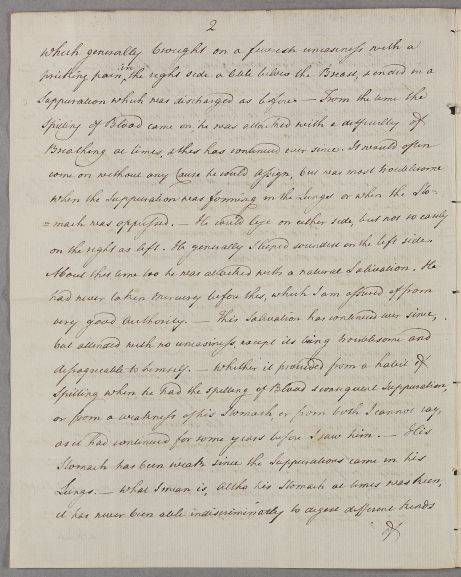 2
which generally brought on a feverish uneasiness with a
pricking pain, in the right side a little below the Breast, & ended in a
Suppuration which was discharged as before — From the time the
Spitting of Blood came on he was attacked with a difficulty of
Breathing at times, & this has continued ever since. It would often
come on without any Cause he could assign, but was most troublesome
when the Suppuration was forming in the Lungs or when the Sto-
=mach was oppressed. — He could lye on either side, but not so easily
on the right as left. He generally Sleeped soundest on the left side.
About this time too he was attacked with a natural Salivation. He
had never taken Mercury before this, which I am assured of from
very good Authority. — This Salivation has continued ever since,
but attended with no uneasiness, except its being troublesome and
disagreeable to himself. — Whether it proceeded from a habit of
Spitting when he had the spitting of Blood & consequent Suppuration,
or from a weakness of his Stomach, or from both I cannot say,
as it had continued for some years before I saw him. — His
Stomach has been weak since the Suppurations came in his
Lungs. — What I mean is, altho his Stomach at times was keen,
it has never been able indiscriminately to digest different kinds
of